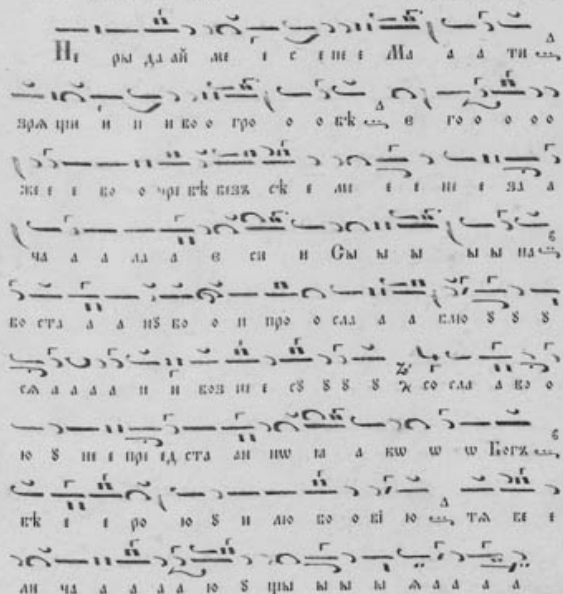 Не ры да ай ме е є е не е Ма а а ти
зрѧ щи и и и во о гро о о бѣ е го о о о
же е е во о чре вѣ безъ сѣ е ме е е не е за а
ча а а ла а е си и Сы ы ы ы ы на
во ста а а нꙋ бо о и про о сла а а влю ꙋ ꙋ ꙋ
сѧ а а а а и и воз не е сꙋ ꙋ ꙋ ꙋ со сла а во о
ю ꙋ не е ста ан нѡ ꙗ а кѡ ѡ ѡ Богъ
вѣ е е е ро ю ꙋ и лю бо о ві ю тѧ ве е
ли ча а а а а ю ꙋ щы ы ы ы ѧ а а а а